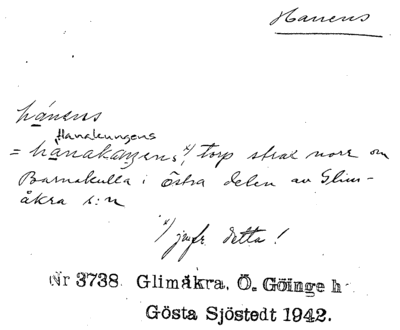 Hanens
hánens
Hanakungens
= hånakaŋens x), torp strax norr om
Barnakulla i östra delen av Glim-
åkra s:n
x) jmfr. detta!
Nr 3738. Glimåkra, Ö. Göinge h
Gösta Sjöstedt 1942.